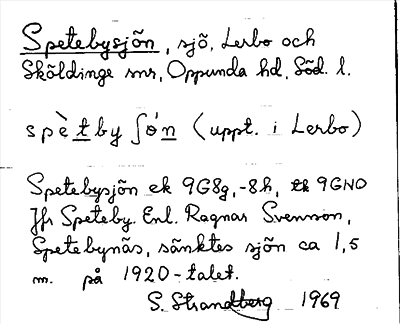 Spetebysjön, sjö, Lerbo och
Sköldinge snr, Oppunda hd, Söd. l.
spètby ʃón (uppt. i Lerbo)
Spetebysjön ek 9G8g,-8h, 9GNO
Jfr Speteby. Enl. Ragnar Svensson,
Spetebynäs, sänktes sjön ca 1,5
m. på 1920-talet.
S. Strandberg 1969